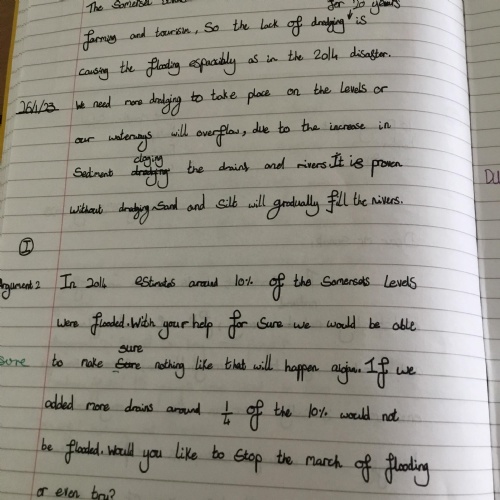 The Somerset for 20 years
farming and tourism, So the lack of dredging is
causing the flooding espacibly as in the 2014 disaster.
26/1/23 We need more dredging to take place on the Levels or
our waterways will overflow, due to the increase in
Sediment cloging the drains and rivers. It is proven
without dredging Sand and Silt will gradually fill the rivers.
I
Argument 2 In 2014 estimates around 10% of the Somersets Levels
were flooded. With your help for sure we would be able
sure to make sure nothing like that will happen algian. If we
added more drains around 1/4 of the 10% would not
be flooded. Would you like to stop the march of flooding
or even try?